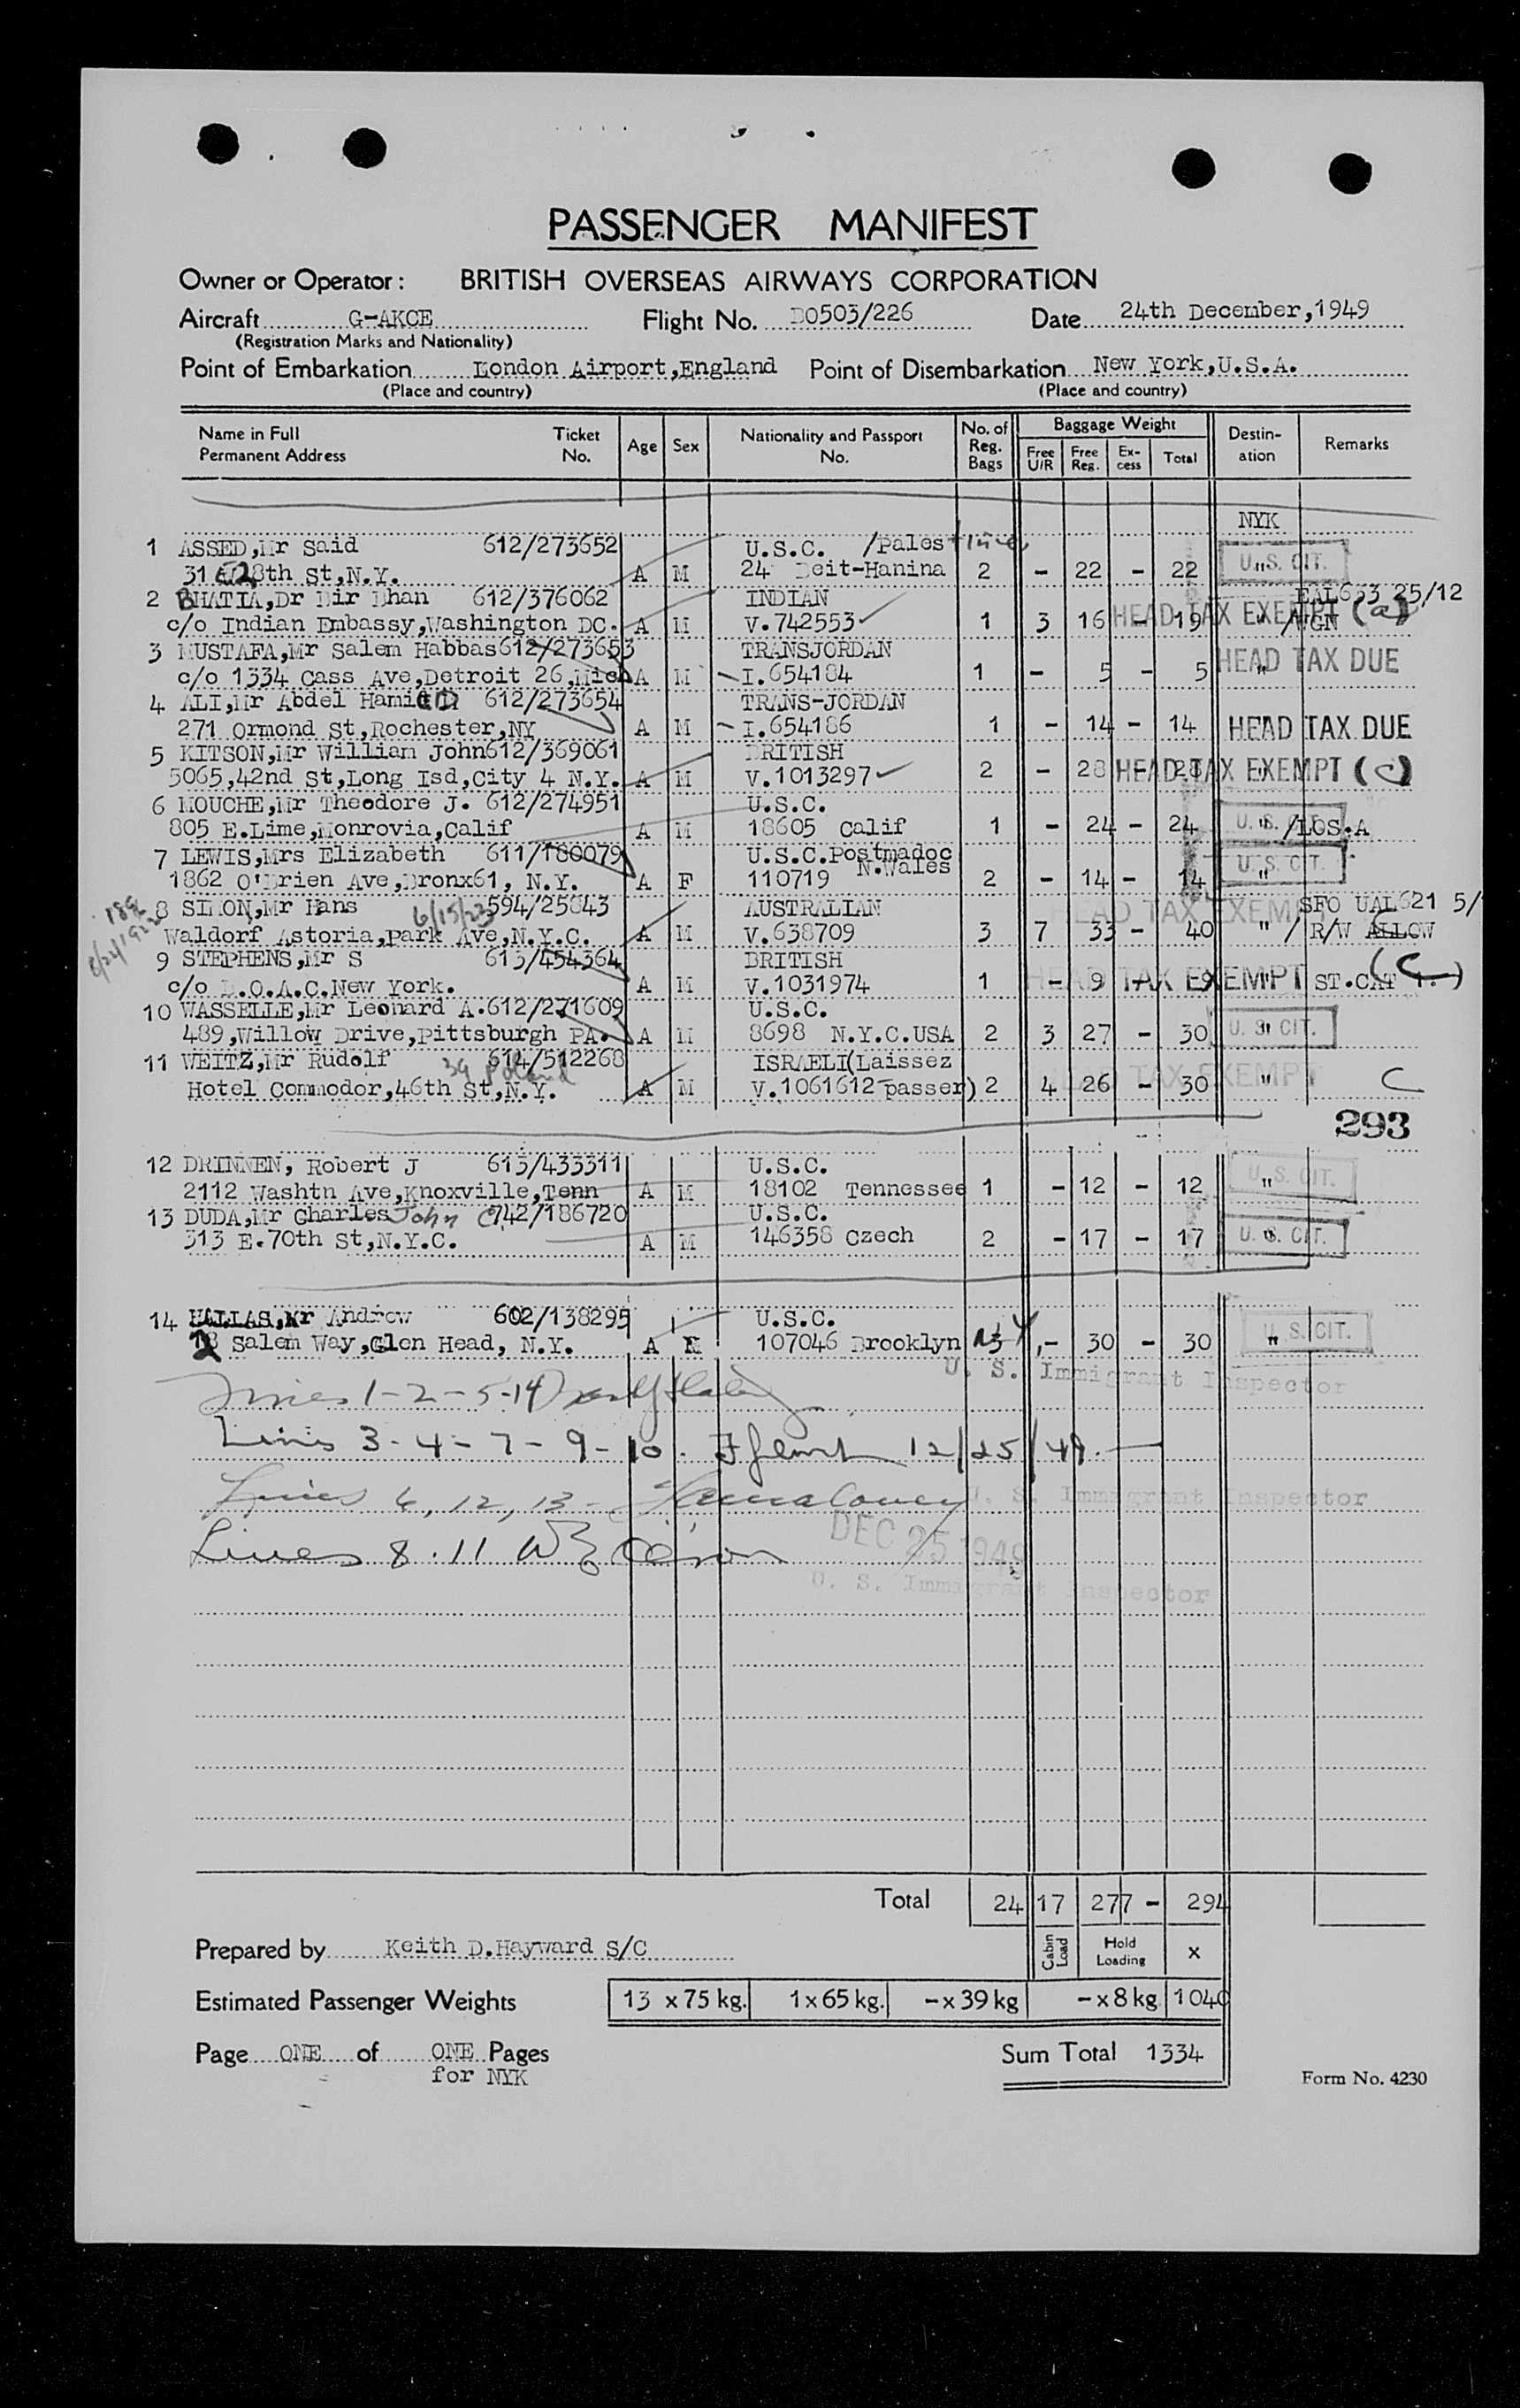 PASSENGER MANIFEST
Owner or Operator: BRITISH OVERSEAS AIRWAYS CORPORATION
Aircraft G-AKCE Flight No. BO503/226 Date 24th December,1949
(Registration Marks and Nationality)
Point of Embarkation London Airport,England Point of Disembarkation New York,U.S.A.
(Place and country) (Place and country)
Name in Full Permanent Address Ticket No. Age Sex Nationality and Passport No. No. of Reg. Bags Baggage Weight Free U/R Free Reg. Ex-cess Total Destin-ation Remarks
NYK
1 ASSED,Mr Said 612/273652 U.S.C. /Palestine
28th St,N.Y. A M 24 Beit-Hanina 2 - 22 - 22 " U.S. CIT.
2 BHATIA,Dr Bir Bhan 612/376062 INDIAN 25/12
c/o Indian Embassy,Washington DC. A M V.742553 1 3 16 - 19 HEAD TAX EXEMPT (a) "
3 MUSTAFA,Mr Salem Habbas 612/273653 TRANSJORDAN
c/o 1334 Cass Ave,Detroit 26,Mich A M I.654184 1 - 5 - 5 " HEAD TAX DUE
4 ALI,Mr Abdel Hamid 612/273654 TRANS-JORDAN
271 Ormond St,Rochester,NY A M I.654186 1 - 14 - 14 HEAD TAX DUE
5 KITSON,Mr William John 612/369061 BRITISH
5065,42nd St,Long Isd,City 4 N.Y. A M V.1013297 2 - 28 - 28 HEAD TAX EXEMPT (C)
6 MOUCHE,Mr Theodore J. 612/274951 U.S.C.
805 E.Lime,Monrovia,Calif A M 18605 Calif 1 - 24 - 24 " /LOS.A U.S. CIT.
7 LEWIS,Mrs Elizabeth 611/180079 U.S.C.Postmadoc N.Wales
1862 O'Brien Ave,Bronx61, N.Y. A F 110719 2 - 14 - 14 " U.S. CIT.
8 SIMON,Mr Hans 6/15/23 594/25843 AUSTRALIAN HEAD TAX EXEMPT SFO UAL621 5/
Waldorf Astoria,Park Ave,N.Y.C. A M V.638709 3 7 33 - 40 " / R/W ALLOW
9 STEPHENS,Mr S 613/454364 BRITISH
c/o B.O.A.C,New York. A M V.1031974 1 - 9 - 9 " HEAD TAX EXEMPT (C)
10 WASSELLE,Mr Leonard A. 612/271609 U.S.C.
489,Willow Drive,Pittsburgh PA. A M 8698 N.Y.C.USA 2 3 27 - 30 " U.S. CIT.
11 WEITZ,Mr Rudolf 39 Poland 614/512268 ISRAELI(Laissez
Hotel Commodor,46th St,N.Y. A M V.1061612 passer) 2 4 26 - 30 " HEAD TAX EXEMPT C
293
12 DRINNEN, Robert J 613/433311 U.S.C.
2112 Washtn Ave,Knoxville,Tenn A M 18102 Tennessee 1 - 12 - 12 " U.S. CIT.
13 DUDA,Mr Charles John 742/186720 U.S.C.
313 E.70th St,N.Y.C. A M 146358 Czech 2 - 17 - 17 " U.S. CIT.
14 HALIAS,Mr Andrew 602/138295 U.S.C.
Salem Way,Glen Head, N.Y. A M 107046 Brooklyn NY - 30 - 30 " U.S. CIT.
U. S. Immigrant Inspector
Lines 1-2-5-14
Lines 3-4-7-9-10. 12/25/49.
Lines 6,12,13- U. S. Immigrant Inspector
Lines 8.11 DEC 25 1949
U. S. Immigrant Inspector
Total 24 17 277 - 294
Prepared by Keith D.Hayward S/C Cabin Load Hold Loading x
Estimated Passenger Weights 13 x 75 kg. 1 x 65 kg. - x 39 kg - x 8 kg 1040
Page ONE of ONE Pages Sum Total 1334
for NYK
Form No. 4230